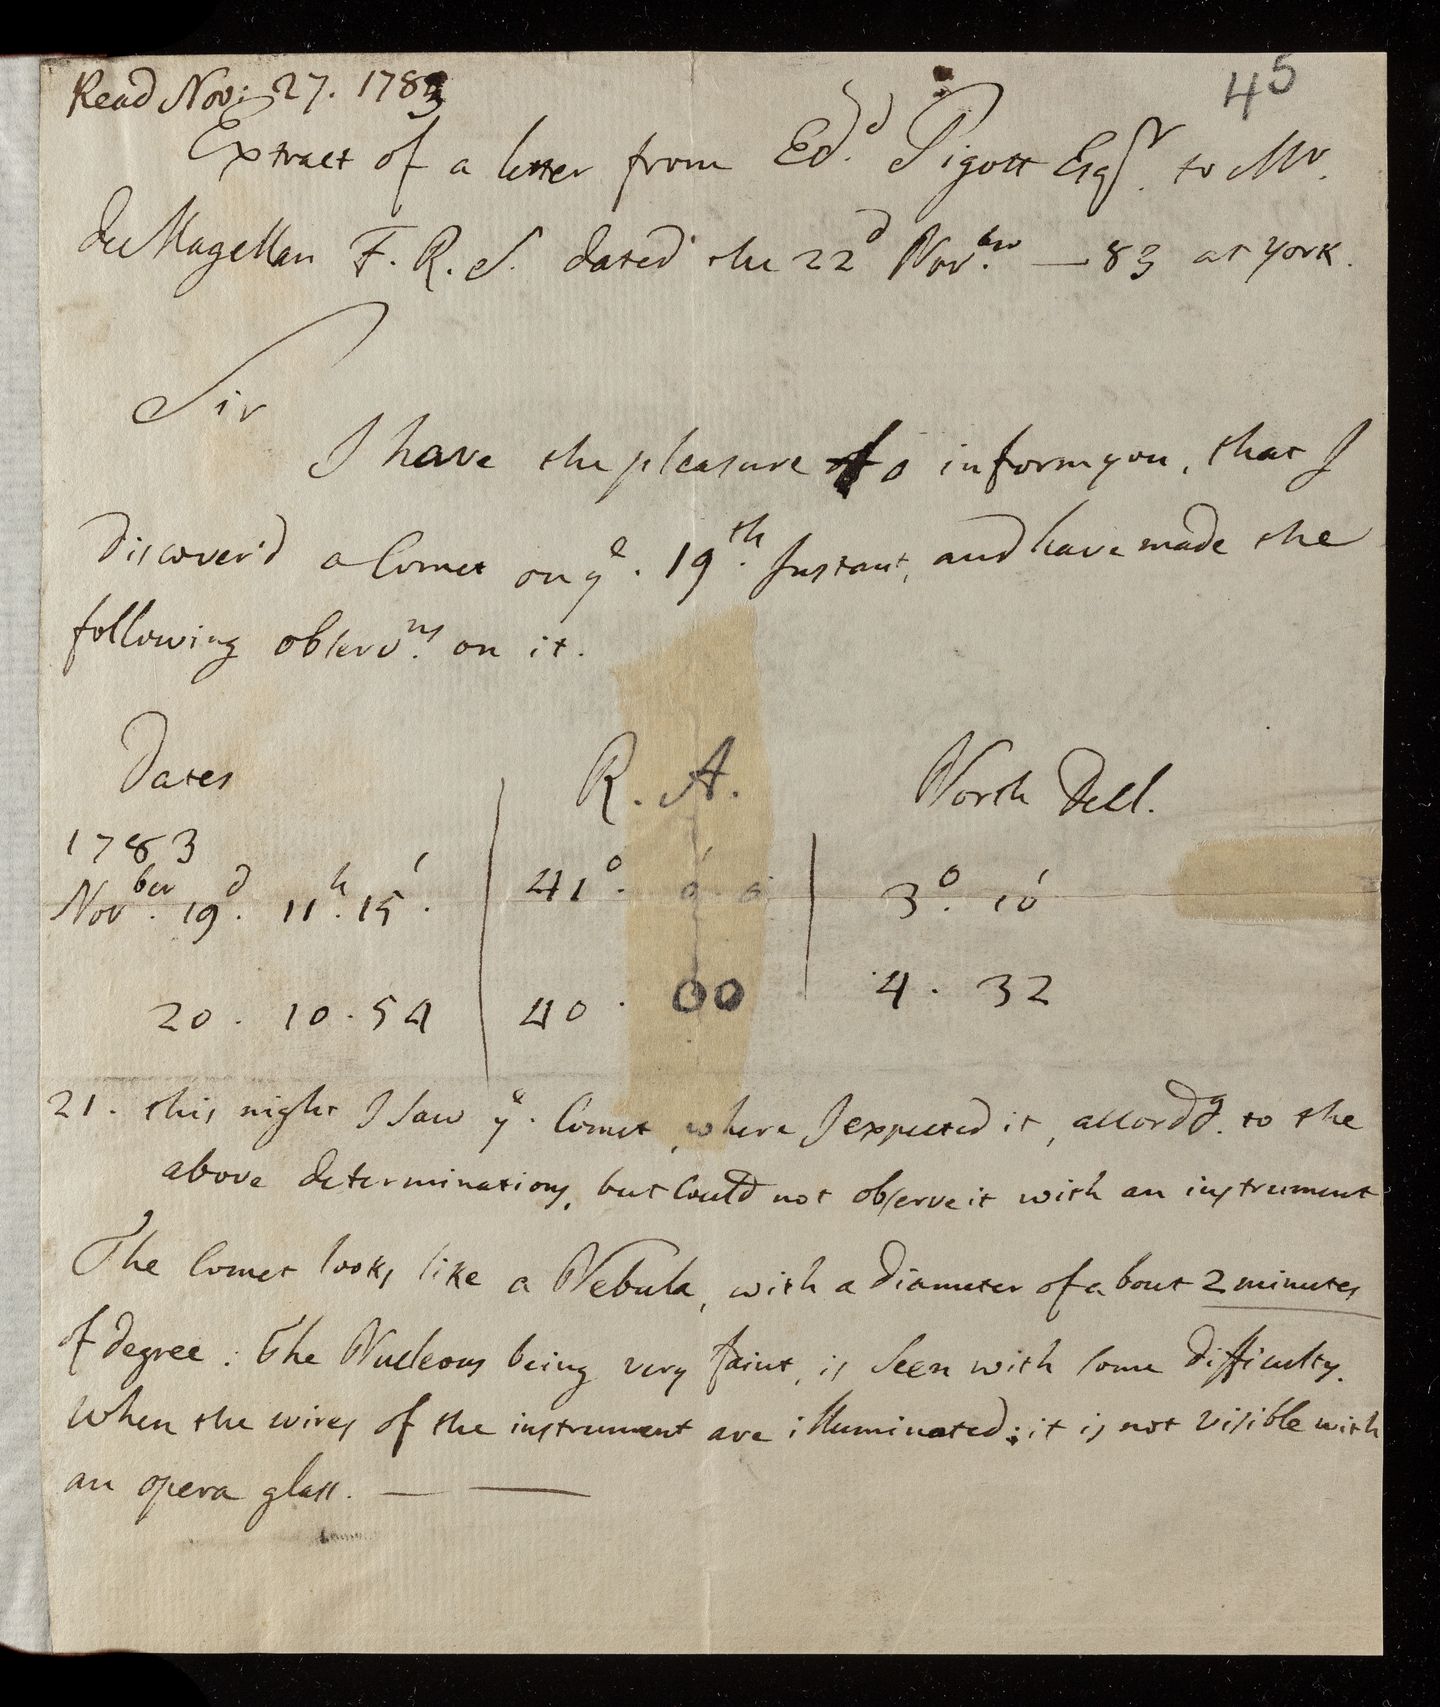 Read Nov: 27. 1783
45
Extract of a letter from Ed.d Pigott Esqr. to Mr.
de Magellan F. R. S. dated the 22d Nov.ber — 83 at York.
Sir
I have the pleasure to inform you, that I
discover'd a Comet on ye. 19th. Instant, and have made the
following observ.ns on it.
Dates R. A. North Decl.
1783
Nov.ber 19d. 11h. 15'. 41°. 0' 0 3°. 10'
20. 10. 54 40. 00 4. 32
21. this night I saw ye. Comet, where I expected it, accordg. to the
above determinations, but could not observe it with an instrument
The Comet looks like a Nebula, with a diameter of about 2 minutes
of degree: The Nucleous being very faint, is seen with some difficulty.
When the wires of the instrument are illuminated: it is not visible with
an opera glass. — —